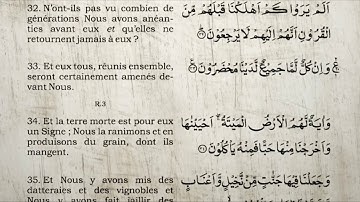 32. N'ont-ils pas vu combien de
générations Nous avons anéan-
ties avant eux et qu'elles ne
retournent jamais à eux ?
33. Et eux tous, réunis ensemble,
seront certainement amenés de-
vant Nous.
R.3
34. Et la terre morte est pour eux
un Signe ; Nous la ranimons et en
produisons du grain, dont ils
mangent.
35. Et Nous y avons mis des
datteraies et des vignobles et
Nous y avons fait jaillir des
اَلَمْ يَرَوْا كَمْ اَهْلَكْنَا قَبْلَهُمْ مِّنَ
الْقُرُوْنِ اَنَّهُمْ اِلَيْهِمْ لَا يَرْجِعُوْنَ
وَاِنْ كُلٌّ لَّمَّا جَمِيْعٌ لَّدَيْنَا مُحْضَرُوْنَ
وَاٰيَةٌ لَّهُمُ الْاَرْضُ الْمَيْتَةُ ۖ اَحْيَيْنٰهَا
وَاَخْرَجْنَا مِنْهَا حَبًّا فَمِنْهُ يَاْكُلُوْنَ
وَجَعَلْنَا فِيْهَا جَنّٰتٍ مِّنْ نَّخِيْلٍ وَّاَعْنَابٍ